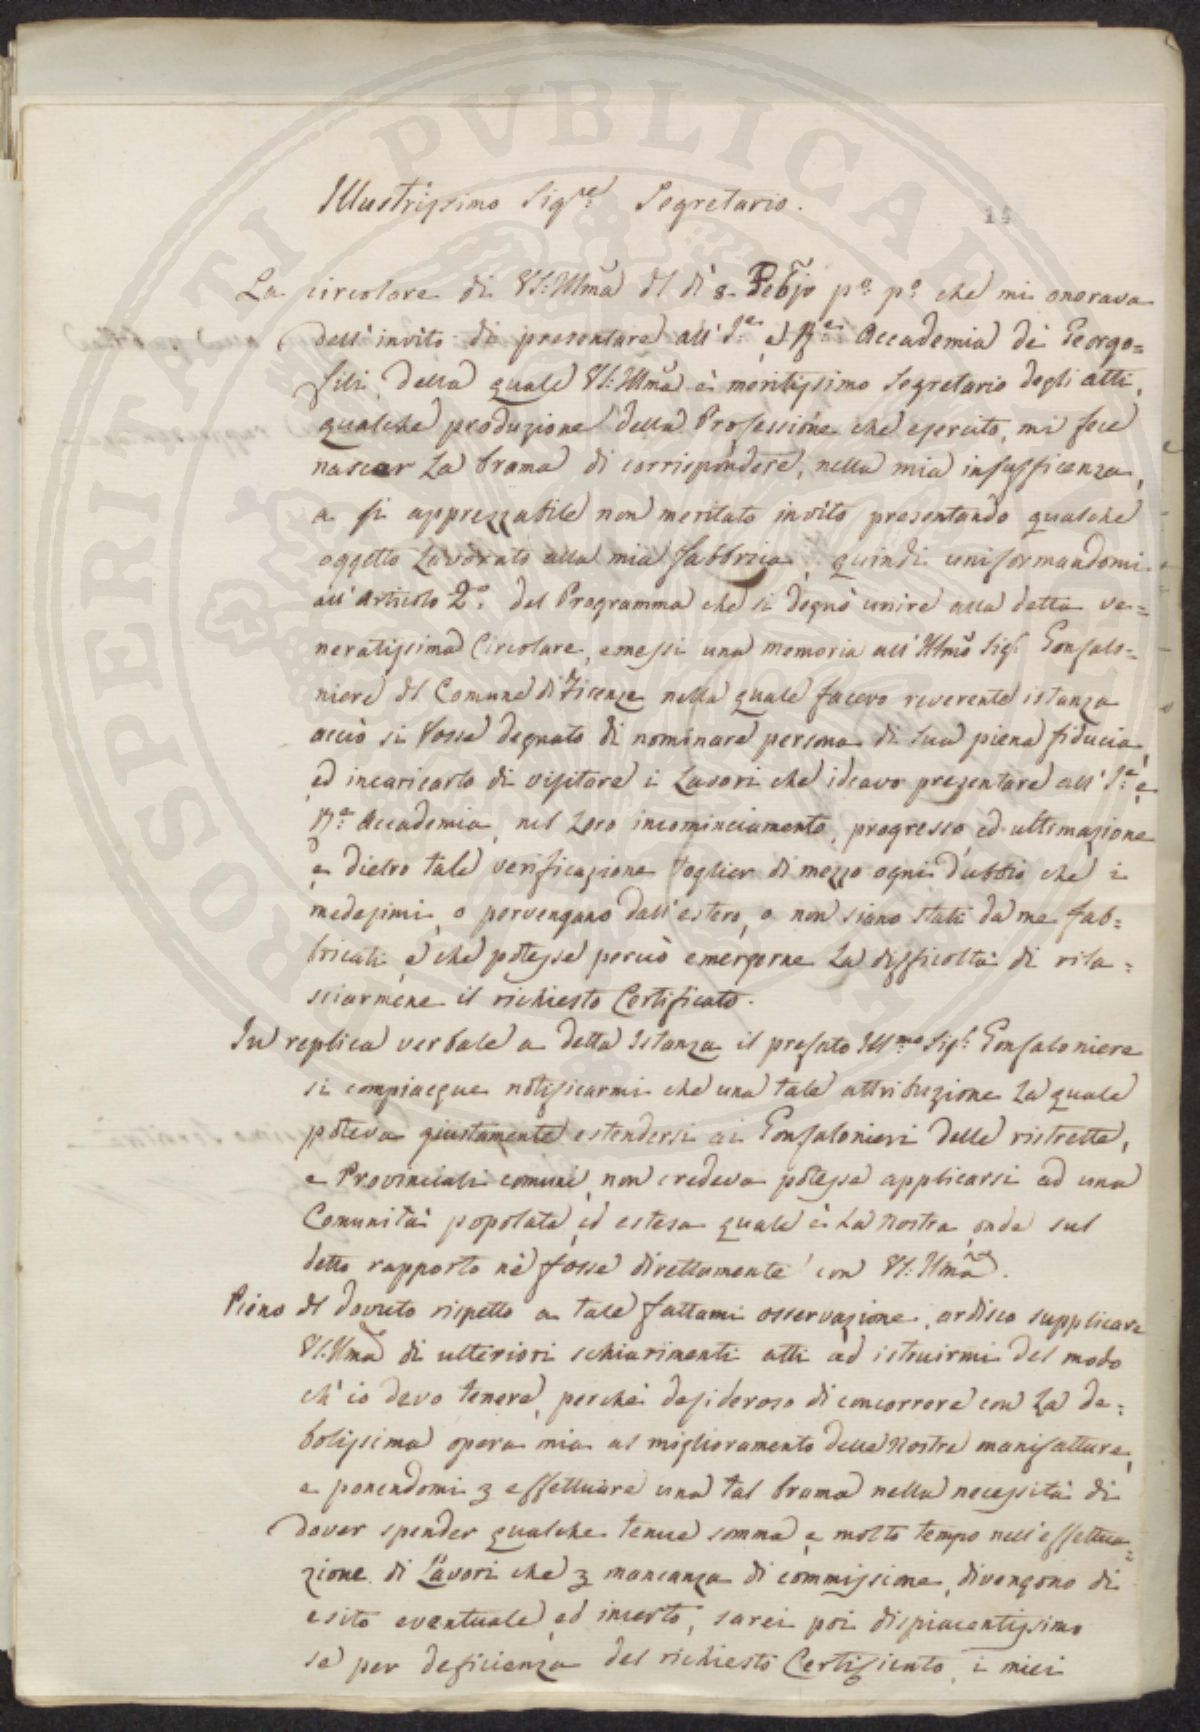 PROSPERITATI PVBLICAE
14
Illustrissimo Sigre: Segretario.
La circolare di VS: Illma del dì 8. Febbjo po: po: che mi onorava
dell'invito di presentare all'I:e e R:e Accademia de Georgo=
fili, della quale VS: Illma è meritissimo Segretario degli atti,
qualche produzione della Professione che esercito, mi fece
nascer la brama di corrispondere, nella mia insufficenza,
a si apprezzabile non meritato invito presentando qualche
oggetto Lavorato alla mia fabbrica; quindi uniformandomi
all'Articolo 2o. del Programma che si degnò unire alla detta ve=
neratissima Circolare, emessi una memoria all'Illmo Sigr: Gonfalo=
niere del Comune di Firenze nella quale facevo reverente istanza
acciò si fosse degnato di nominare persona di sua piena fiducia,
ed incaricarlo di visitare i Lavori che ideavo presentare all'I:e e
R:e Accademia, nel Loro incominciamento, progresso, ed ultimazione
e dietro tale verificazione toglier di mezzo ogni dubbio che i
medesimi, o pervengano dall'estero, o non siano stati da me fab=
bricati, e che potesse perciò emergerne la difficoltà di rila=
sciarmene il richiesto Certificato.
In replica verbale a detta Istanza il prefato Illmo Sigr: Gonfaloniere
si compiacque notificarmi che una tale attribuzione la quale
poteva giustamente estendersi ai Gonfalonieri delle ristrette,
e Provinciali comuni, non credeva potesse applicarsi ad una
Comunità popolata, ed estesa quale è la nostra, onde sul
detto rapporto nè fosse direttamente con VS: Illma.
Pieno del dovuto rispetto a tale fattami osservazione, ardisco supplicare
VS: Illma di ulteriori schiarimenti atti ad istruirmi del modo
ch'io devo tenere, perchè desideroso di concorrere con la de=
bolissima opera mia al miglioramento delle nostre manifatture,
e ponendomi 3 effettuare una tal brama nella necessità di
dover spender qualche tenue somma, e molto tempo nell'effettua=
zione di Lavori che 3 mancanza di commissione, divengono di
esito eventuale, ed incerto, sarei poi dispiacentissimo
se per deficienza del richiesto Certificato, i miei